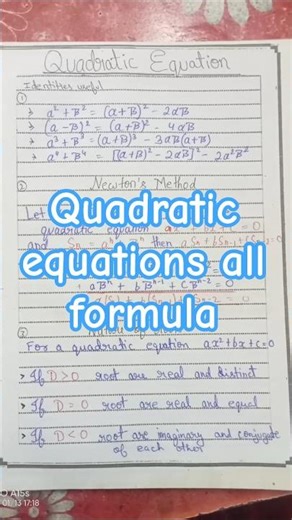 Quadratic Equation
Identities useful
①
→ a² + B² = (a+B)² - 2aB
→ (a-B)² = (a+B)² - 4aB
→ a³ + B³ = (a+B)³ - 3aB(a+B)
→ a⁴ + B⁴ = [(a+B)² - 2aB]² - 2a²B²
② Newton's Method
Let
quadratic equation ax² + bx + c = 0
and Sn = then
Quadratic
equations all
formula
aBⁿ + bBⁿ⁻¹ + CBⁿ⁻² = 0
For a quadratic equation ax²+bx+c=0
→ If D>0 root are real and distinct
→ If D = 0 root are real and equal
→ If D<0 root are imaginary and conjugate
of each other
A15s
01/13 17:18